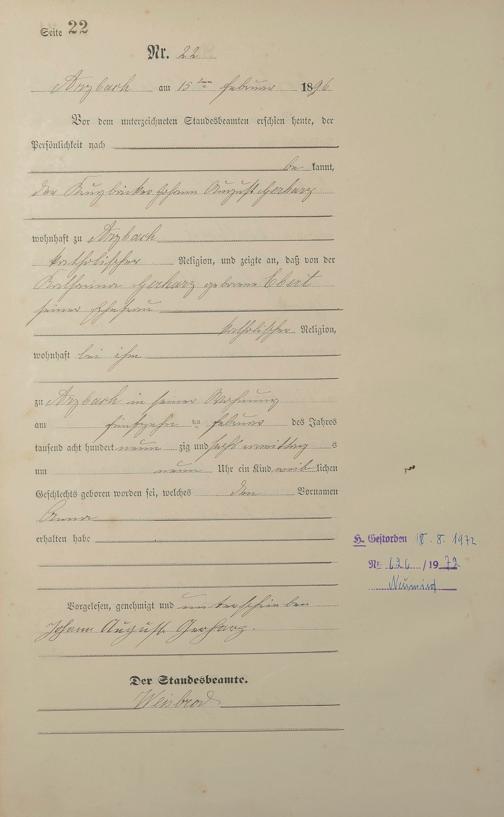 Seite 22
Nr. 22
Arzbach am 15ten Februar 1896
Vor dem unterzeichneten Standesbeamten erschien heute, der
Persönlichkeit nach
be kannt,
der Krugbäcker Johann August Gerharz
wohnhaft zu Arzbach
katholischer Religion, und zeigte an, daß von der
Katharina Gerharz geborene Ebert
seiner Ehefrau
katholischer Religion,
wohnhaft bei ihm
zu Arzbach in seiner Wohnung
am fünfzehn ten Februar des Jahres
tausend acht hundert neun zig und sechs vormittag s
um neun Uhr ein Kind weib lichen
Geschlechts geboren worden sei, welches den Vornamen
Anna
erhalten habe
Vorgelesen, genehmigt und unterschrieben
Johann August Gerharz.
Der Standesbeamte.
Weisbrod
H. Gestorben 18.8.1972
Nr. 626 /1972